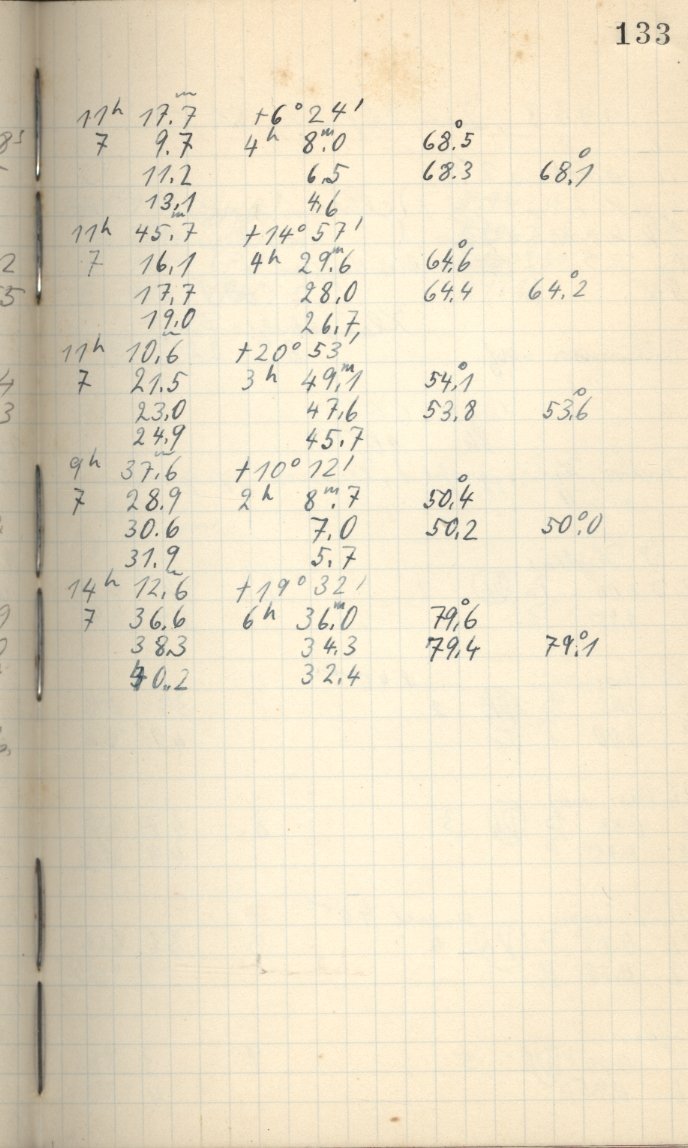 133
11h 17.7m +6°24'
7 9.7 4h 8.m0 68.°5
11.2 6.5 68.3 68.°1
13.1 4.6
11h 45.m7 +14°57'
7 16.1 4h 29.m6 64.°6
17.7 28.0 64.4 64.°2
19.0 26.7
11h 10.m6 +20°53'
7 21.5 3h 49.m1 54.°1
23.0 47.6 53.8 53.°6
24.9 45.7
9h 37.m6 +10°12'
7 28.9 2h 8m.7 50.°4
30.6 7.0 50.2 50.°0
31.9 5.7
14h 12.m6 +19°32'
7 36.6 6h 36.m0 79.°6
38.3 34.3 79.4 79.°1
40.2 32.4